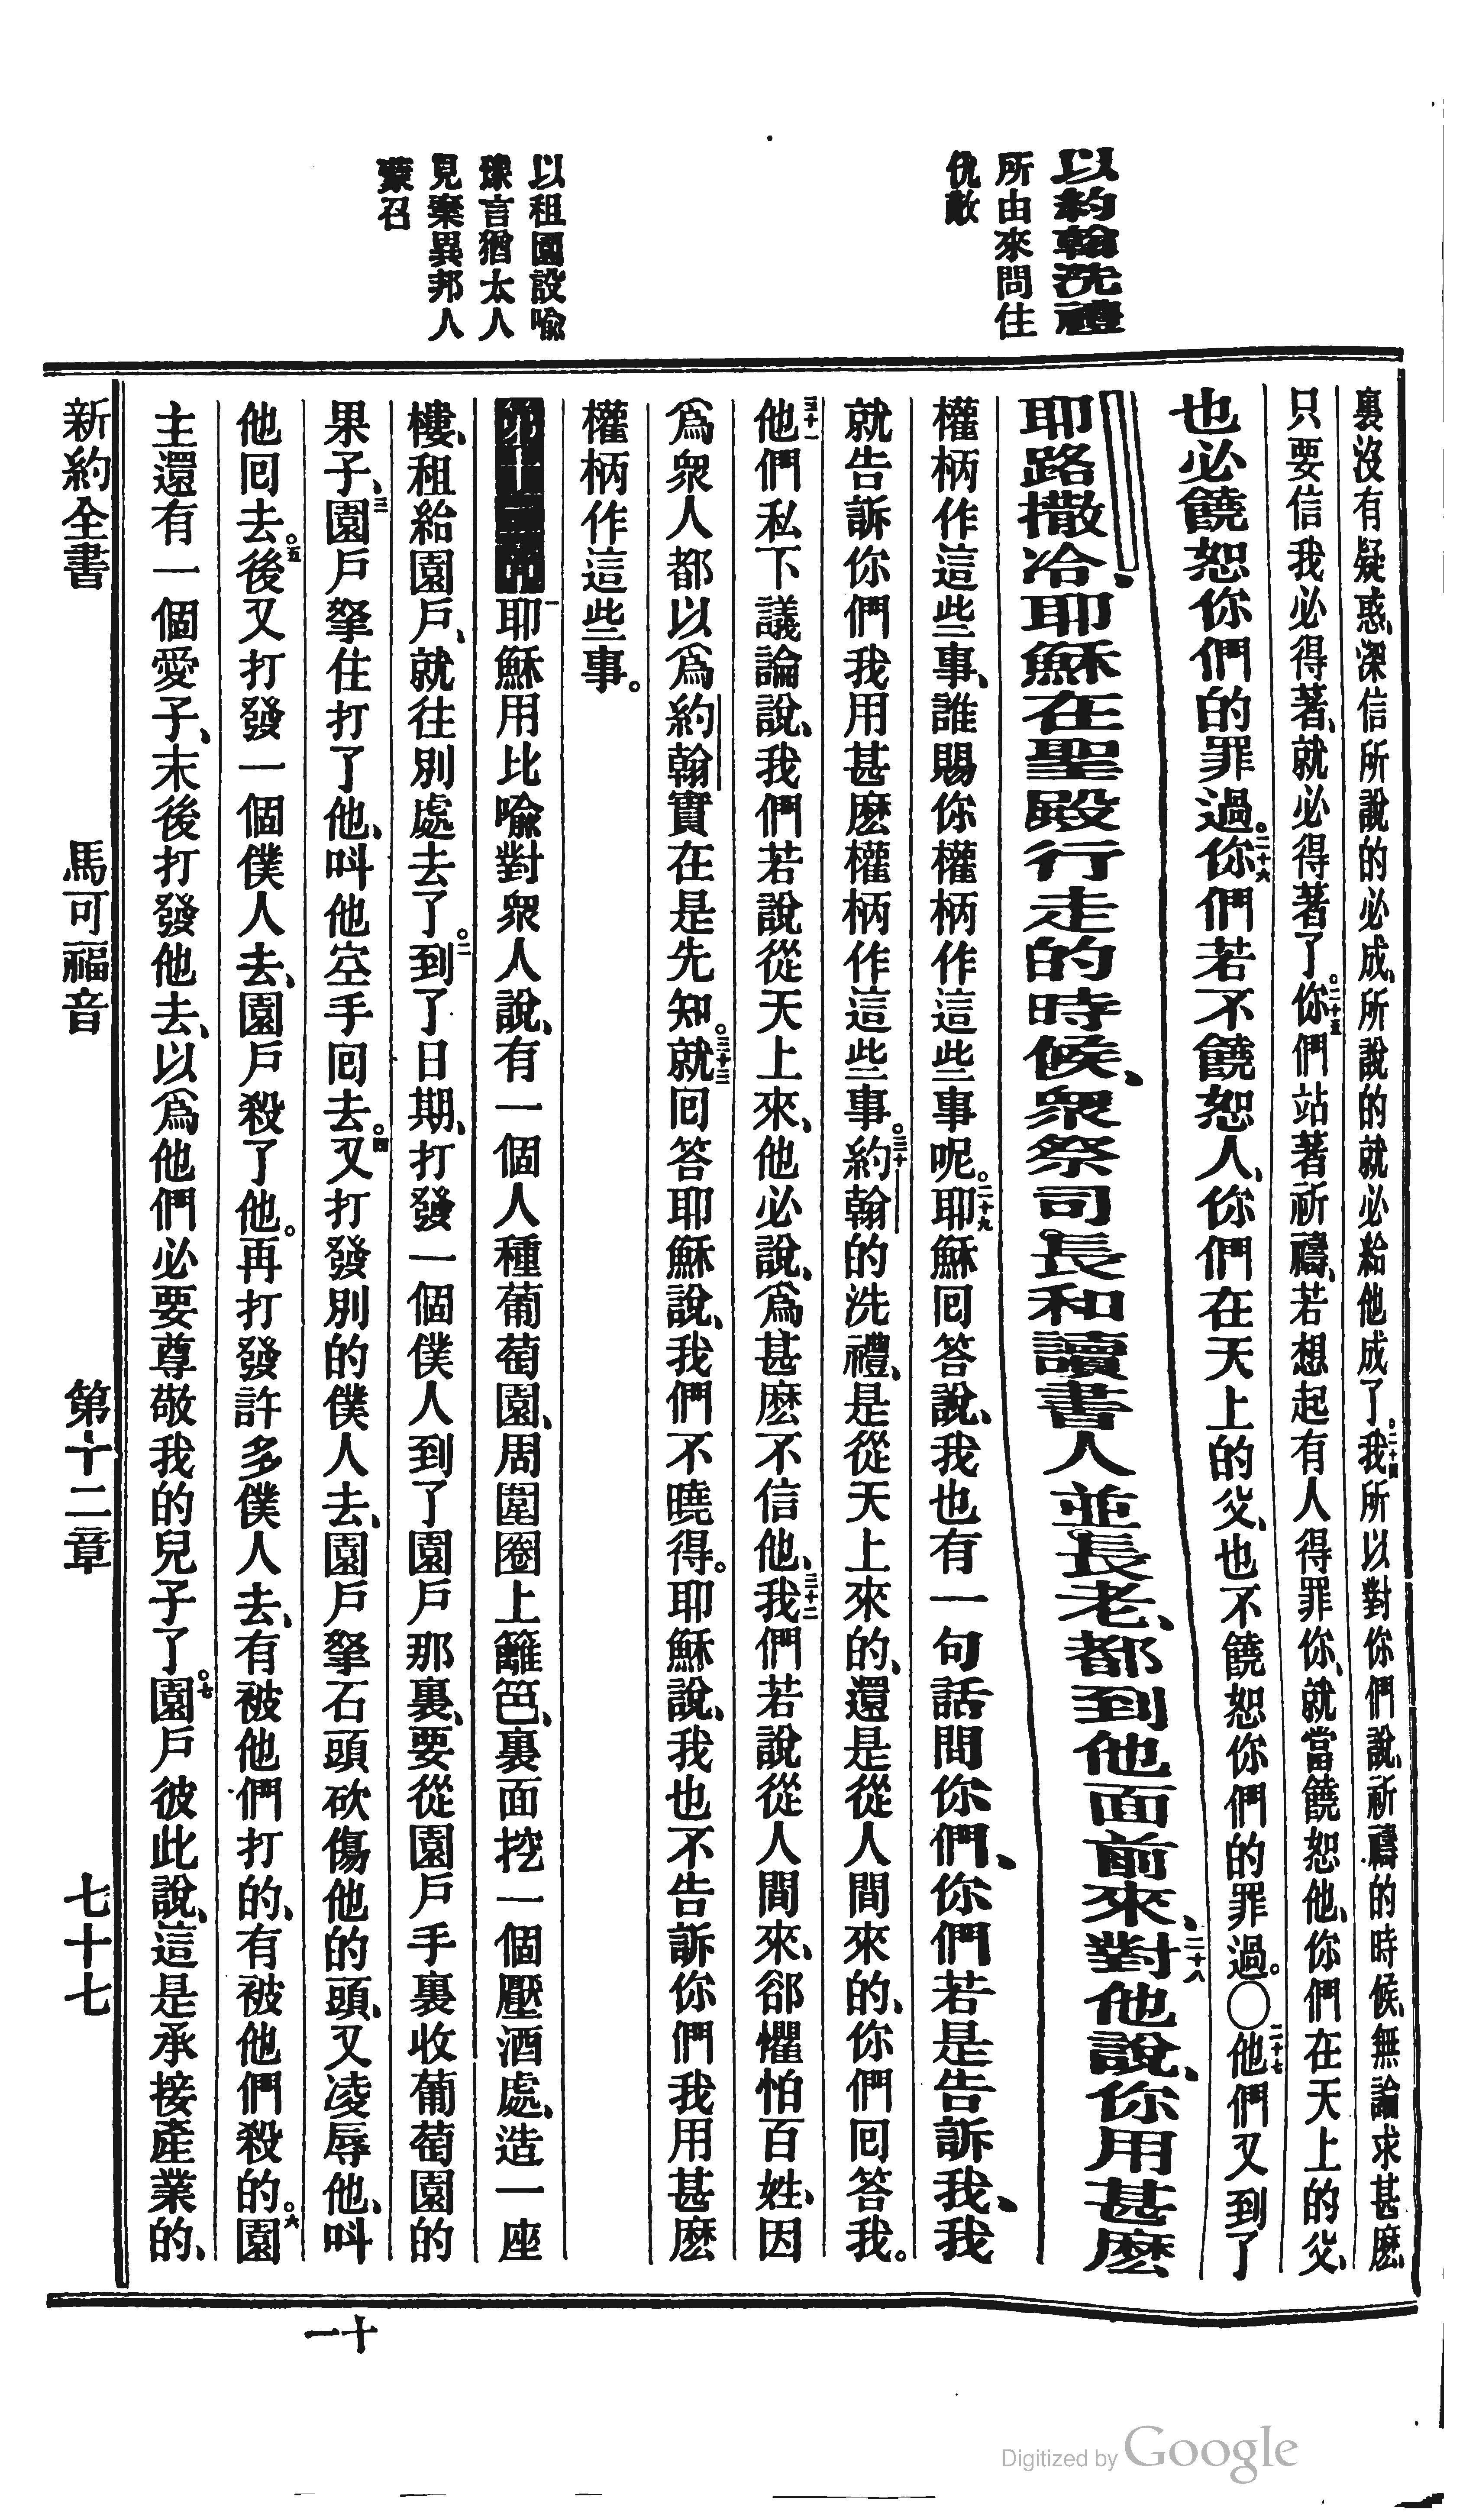 以約翰洗禮
所由來問住
仇敵
以租園設喻
豫言猶太人
見棄異邦人
蒙召
裏沒有疑惑、深信所說的必成、所說的就必給他成了。二十四我所以對你們說、祈禱的時候、無論求甚麽、
只要信我必得著、就必得著了。二十五你們站著祈禱、若想起有人得罪你、就當饒恕他、你們在天上的父、
也必饒恕你們的罪過。二十六你們若不饒恕人、你們在天上的父、也不饒恕你們的罪過。〇二十七他們又到了
耶路撒冷、耶穌在聖殿行走的時候、衆祭司長和讀書人並長老、都到他面前來、二十八對他說、你用甚麽
權柄作這些事、誰賜你權柄作這些事呢。二十九耶穌回答說、我也有一句話問你們、你們若是告訴我、我
就告訴你們我用甚麽權柄作這些事。三十約翰的洗禮、是從天上來的、還是從人間來的、你們回答我。
三十一他們私下議論說、我們若說從天上來、他必說、爲甚麽不信他、三十二我們若說從人間來、卻懼怕百姓、因
爲衆人都以爲約翰實在是先知。三十三就回答耶穌說、我們不曉得。耶穌說、我也不告訴你們我用甚麽
權柄作這些事。
一耶穌用比喻對衆人說、有一個人種葡萄園、周圍圈上籬笆、裏面挖一個壓酒處、造一座
樓、租給園戶、就往別處去了。二到了日期、打發一個僕人到了園戶那裏、要從園戶手裏收葡萄園的
果子、三園戶拏住打了他、叫他空手回去。四又打發別的僕人去、園戶拏石頭砍傷他的頭、又凌辱他、叫
他回去。五後又打發一個僕人去、園戶殺了他。再打發許多僕人去、有被他們打的、有被他們殺的。六園
主還有一個愛子、末後打發他去、以爲他們必要尊敬我的兒子了。七園戶彼此說、這是承接產業的、
新約全書 馬可福音 第十二章 七十七
十一
Digitized by Google